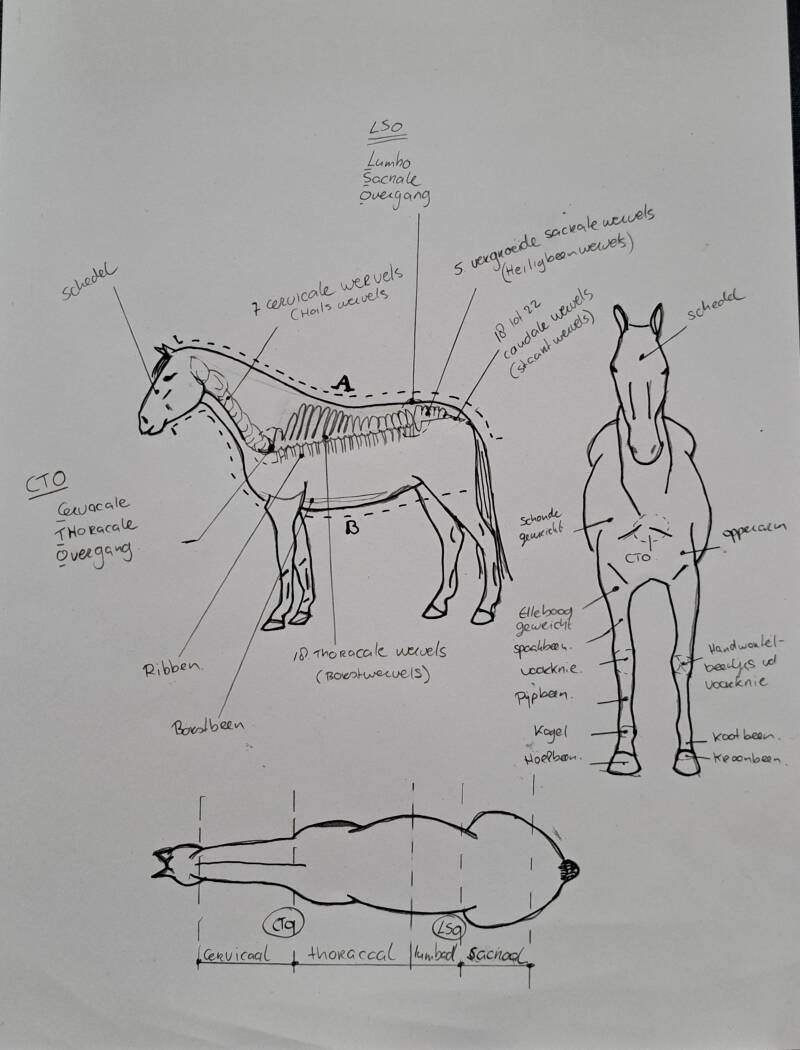 LSO
Lumbo
Sacrale
Overgang
5 vergroeide sacrale wervels
(Heiligbeenwervels)
schedel
7 cervicale wervels
(Hals wervels
18 tot 22
caudale wervels
(staart wervels)
schedel
A
CTO
Cervacale
THoracale
Overgang
B
schouder
gewricht
CTO
opperarm
Elleboog
geweicht
spaakbeen.
voorknie.
Handwortel-
beentjes vd
voorknie
Pijpbeen.
Kogel
Hoefbeen.
Kootbeen.
Kroonbeen.
Ribben.
18. THoracale wervels
(Borstwervels)
Borstbeen
CTO
LSO
Cervicaal
thoracaal
lumbaal
Sacraal